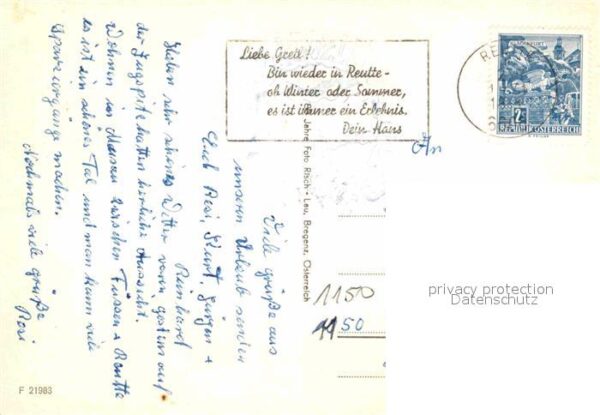 Liebe Gretl!
Bin wieder in Reutte -
ob Winter oder Sommer,
es ist immer ein Erlebnis.
Dein Hans
RE
2
REPUBLIK ÖSTERREICH
An
Viele Grüße aus
unserem Urlaub senden
Euch Resi, Kurt, Jürgen +
Reinhard
Haben sehr schönes Wetter waren gestern auf
der Zugspitze hatten herrliche Aussicht.
Wohnen in Musau zwischen Füssen + Reutte
es ist ein schönes Tal und man kann viele
Spaziergänge machen.
Nochmals viele Grüße
Resi
Foto Risch - Lau, Bregenz, Österreich
1150
1150
privacy protection
Datenschutz
F 21983